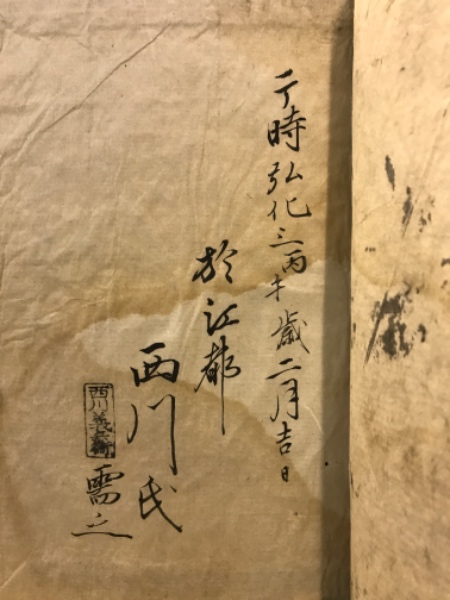 于時弘化三丙午歳二月吉日
於江都
西川氏
西川義兵衛
需之